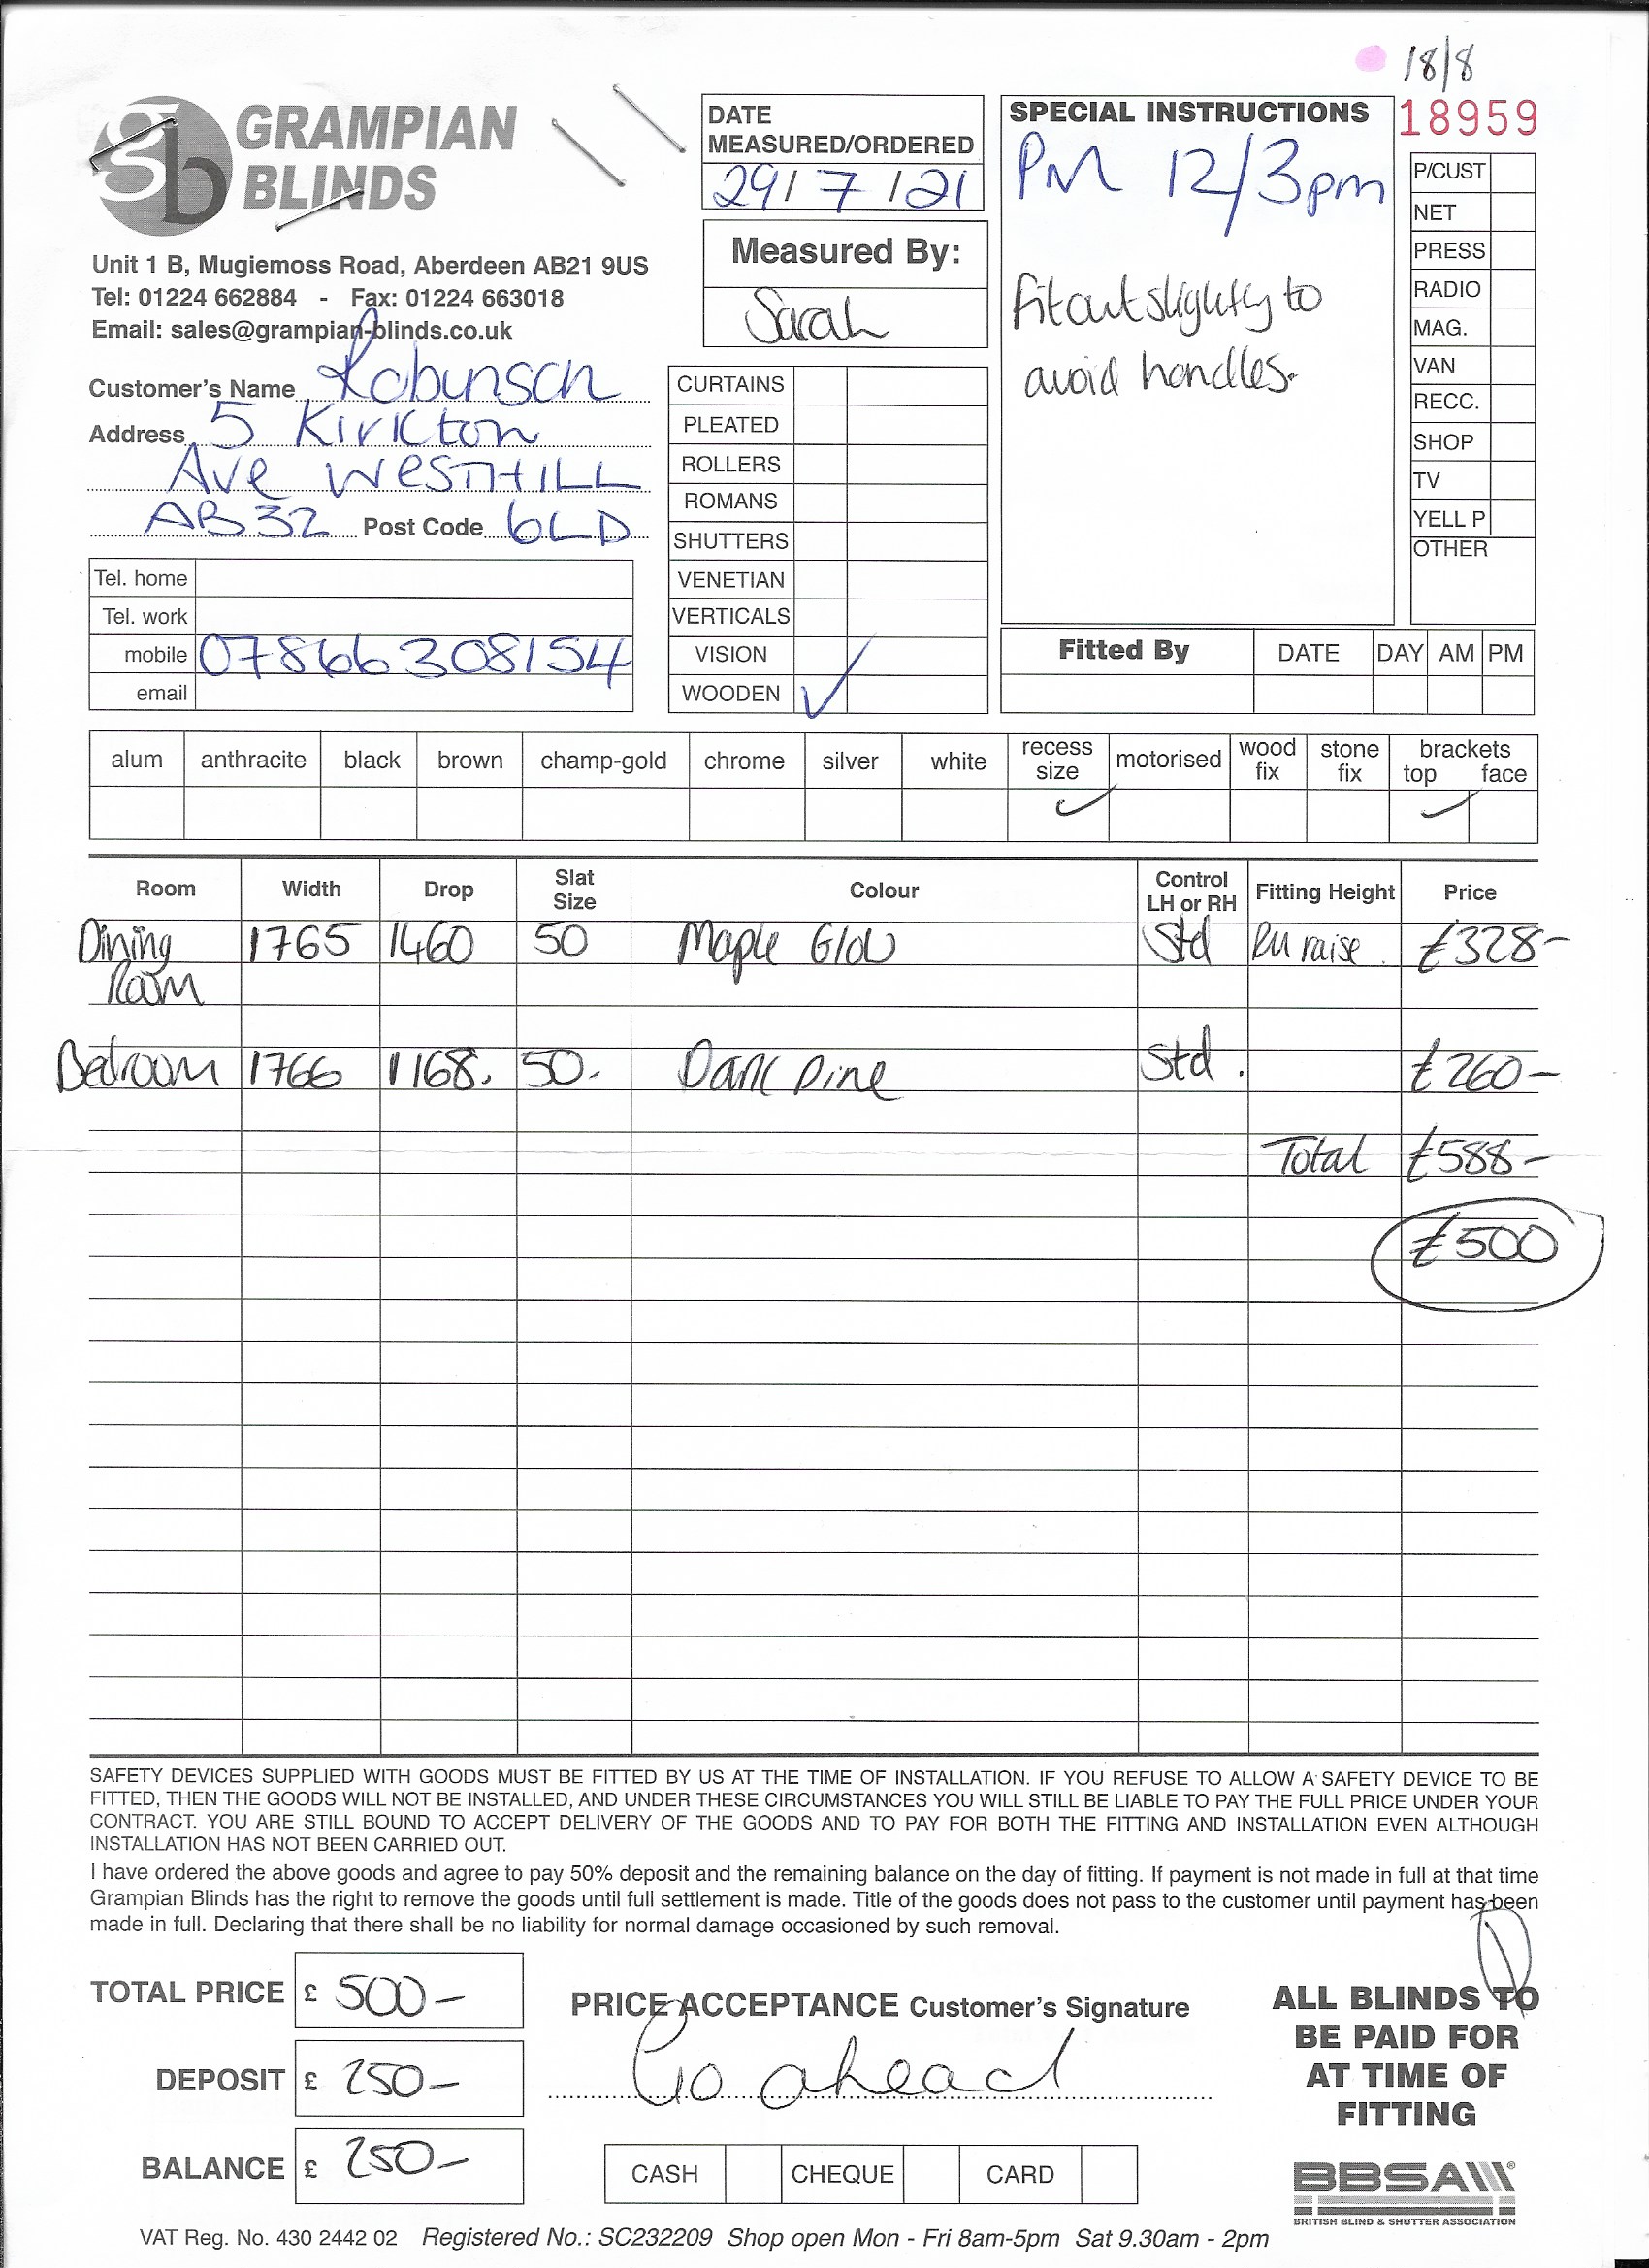 18/8
GRAMPIAN
BLINDS
Unit 1 B, Mugiemoss Road, Aberdeen AB21 9US
Tel: 01224 662884 - Fax: 01224 663018
Email: sales@grampian-blinds.co.uk
DATE
MEASURED/ORDERED
29/7/21
Measured By:
Sarah
SPECIAL INSTRUCTIONS
PM 12/3pm
Fit out slightly to
avoid handles.
18959
P/CUST
NET
PRESS
RADIO
MAG.
VAN
RECC.
SHOP
TV
YELL P
OTHER
Customer's Name Robinson
Address 5 Kirkton
Ave WESTHILL
AB32 Post Code 6LD
Tel. home
Tel. work
mobile 07866308154
email
CURTAINS
PLEATED
ROLLERS
ROMANS
SHUTTERS
VENETIAN
VERTICALS
VISION
WOODEN ✓
Fitted By DATE DAY AM PM
alum anthracite black brown champ-gold chrome silver white recess size motorised wood fix stone fix brackets top face
✓ ✓
Room Width Drop Slat Size Colour Control LH or RH Fitting Height Price
Dining 1765 1460 50 Maple Glow Std raise. £328-
Room
Bedroom 1766 1168. 50. Dark pine Std. £260-
Total £588-
£500
SAFETY DEVICES SUPPLIED WITH GOODS MUST BE FITTED BY US AT THE TIME OF INSTALLATION. IF YOU REFUSE TO ALLOW A SAFETY DEVICE TO BE
FITTED, THEN THE GOODS WILL NOT BE INSTALLED, AND UNDER THESE CIRCUMSTANCES YOU WILL STILL BE LIABLE TO PAY THE FULL PRICE UNDER YOUR
CONTRACT. YOU ARE STILL BOUND TO ACCEPT DELIVERY OF THE GOODS AND TO PAY FOR BOTH THE FITTING AND INSTALLATION EVEN ALTHOUGH
INSTALLATION HAS NOT BEEN CARRIED OUT.
I have ordered the above goods and agree to pay 50% deposit and the remaining balance on the day of fitting. If payment is not made in full at that time
Grampian Blinds has the right to remove the goods until full settlement is made. Title of the goods does not pass to the customer until payment has been
made in full. Declaring that there shall be no liability for normal damage occasioned by such removal.
TOTAL PRICE £ 500-
DEPOSIT £ 250-
BALANCE £ 250-
PRICE ACCEPTANCE Customer's Signature
Go ahead
CASH CHEQUE CARD
ALL BLINDS TO
BE PAID FOR
AT TIME OF
FITTING
BBSA
BRITISH BLIND & SHUTTER ASSOCIATION
VAT Reg. No. 430 2442 02 Registered No.: SC232209 Shop open Mon - Fri 8am-5pm Sat 9.30am - 2pm